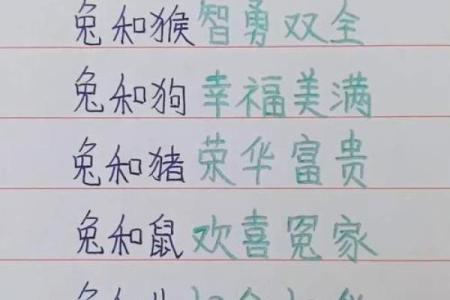 兔和猴智勇双全
兔和狗幸福美满
兔和猪荣华富贵
兔和鼠欢喜冤家